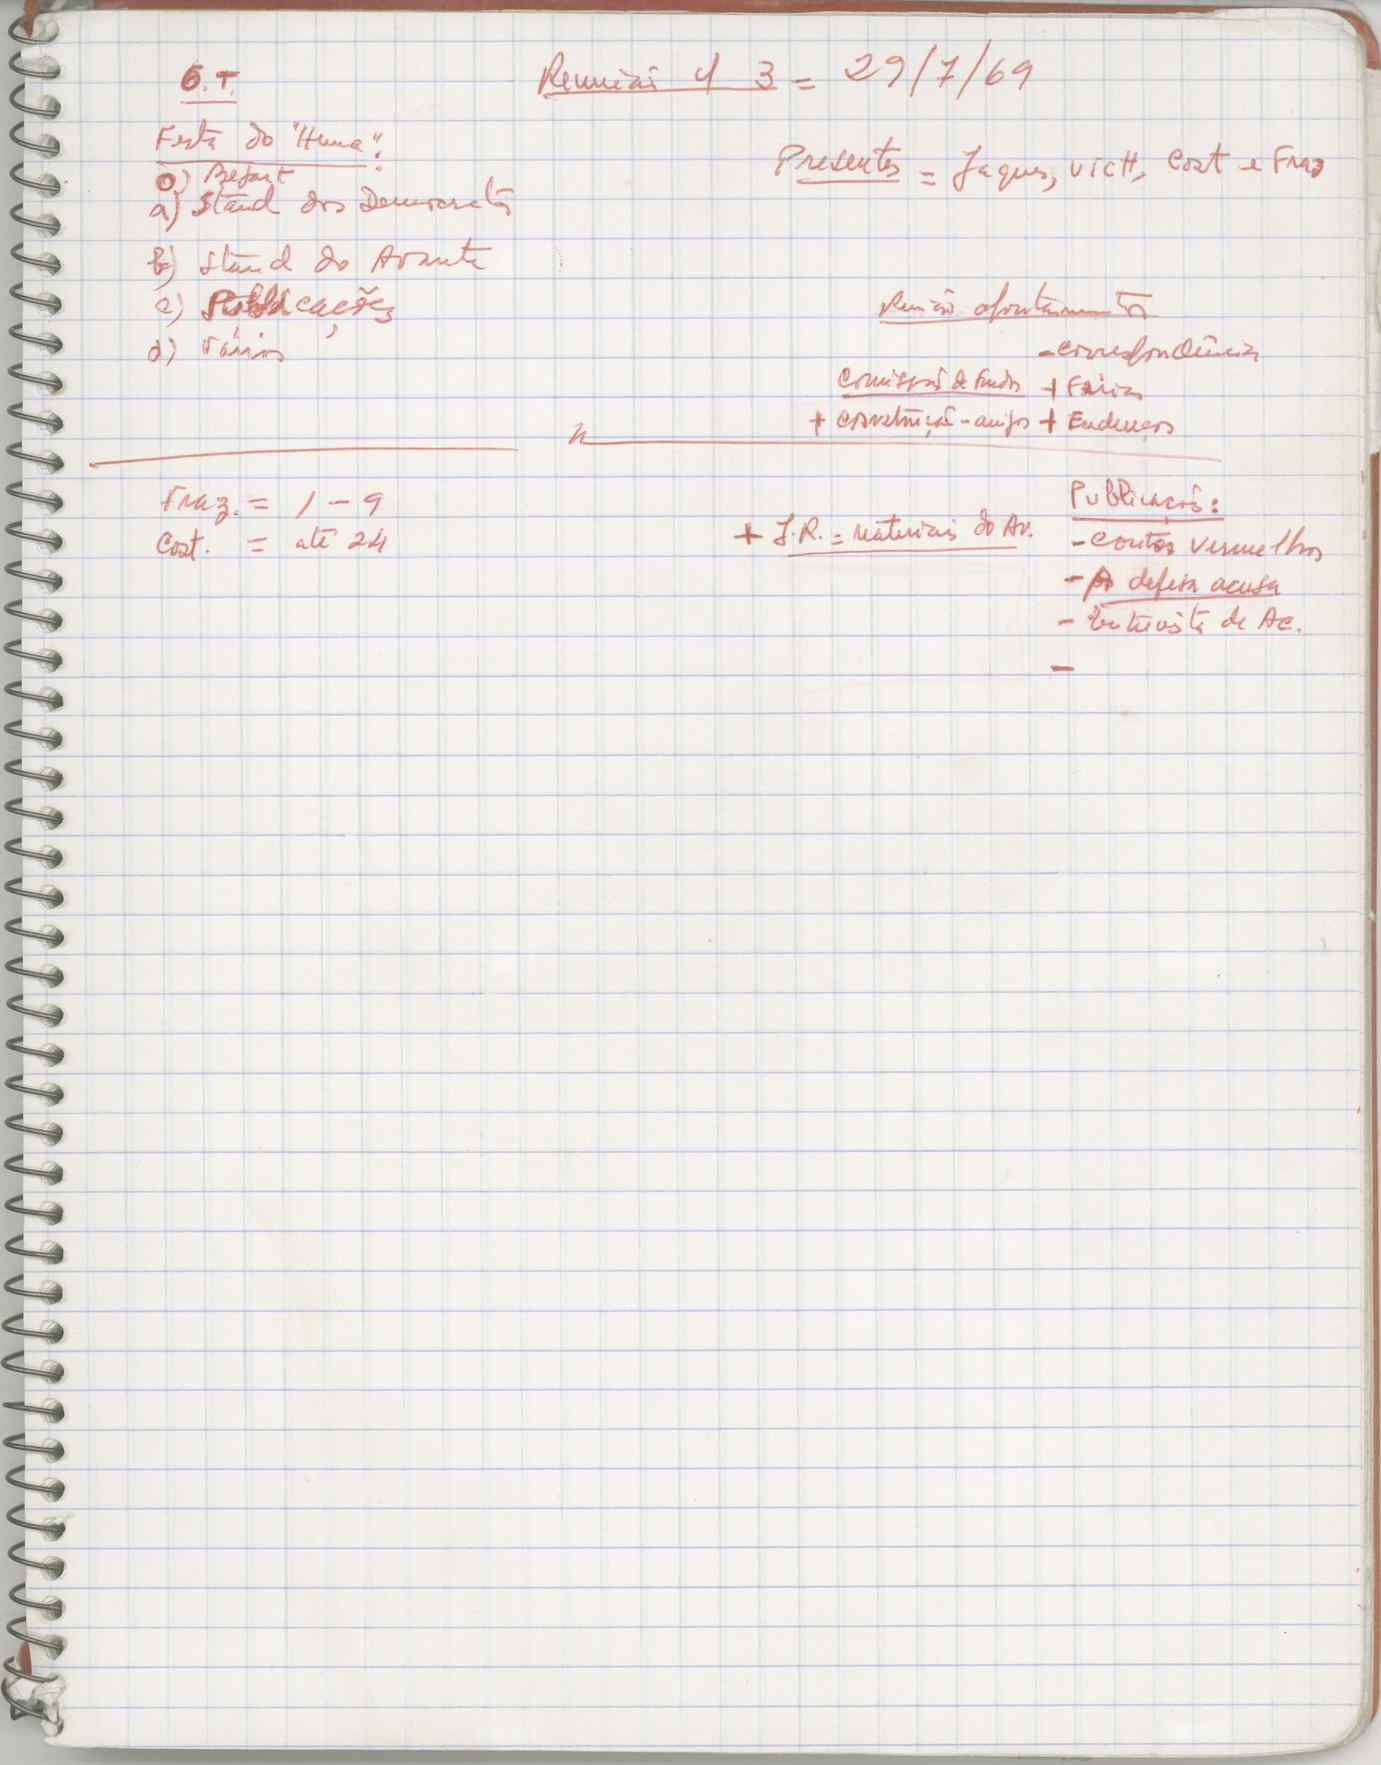 O.T.
Reunião c/ 3 = 29/7/69
Festa do "Huma":
0)
a) Stand dos Democratas
b) Stand do Avante
c) Publicações
d) Vários
Presentes = Jaques, Vict, Cost e Fraz
Reunião apontamentos
- correspondência
Comissão de Fundos + Férias
+ construção - amigos + Endereços
Fraz. = 1 - 9
Cost. = até 24
+ J.R. = materiais do Av.
Publicações:
- contos vermelhos
- A defesa acusa
- Entrevista de AC.
-